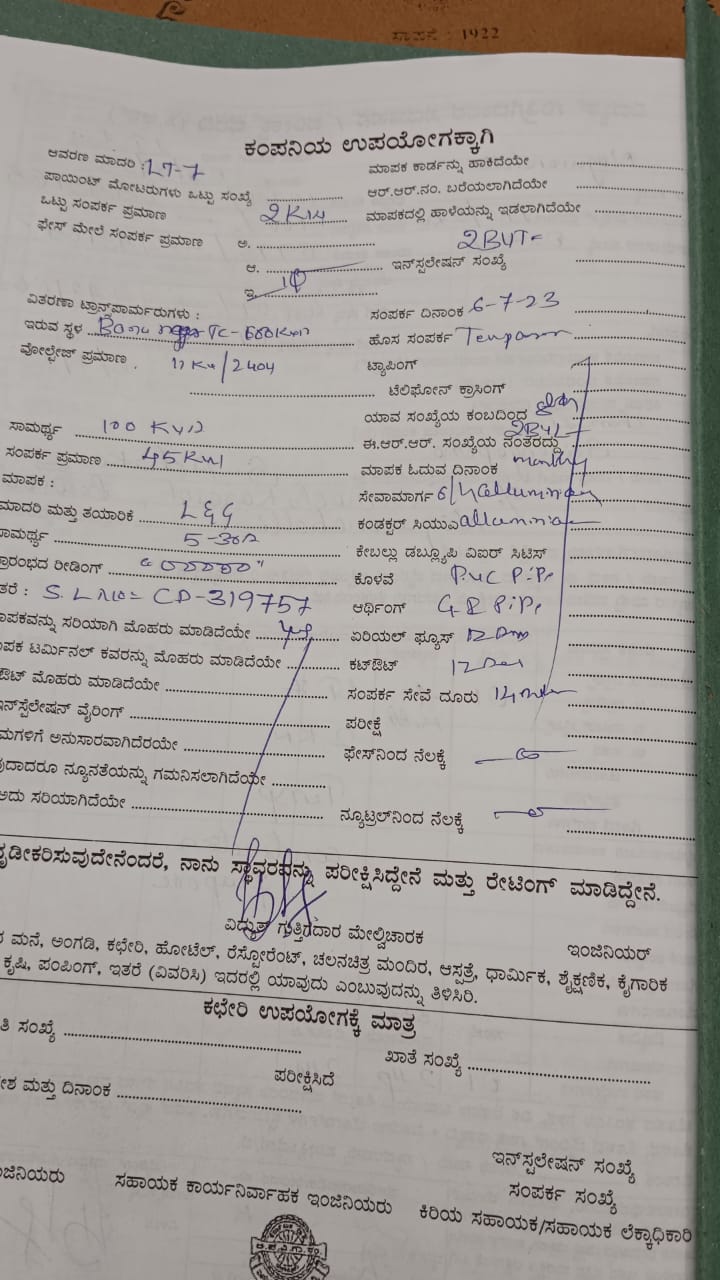 ಸ್ಥಾಪನೆ : 1922
ಕಂಪನಿಯ ಉಪಯೋಗಕ್ಕಾಗಿ
ಆವರಣ ಮಾದರಿ : LT-7
ಮಾಪಕ ಕಾರ್ಡನ್ನು ಹಾಕಿದೆಯೇ
ಪಾಯಿಂಟ್ ಮೋಟರುಗಳು ಒಟ್ಟು ಸಂಖ್ಯೆ
ಆರ್.ಆರ್.ನಂ. ಬರೆಯಲಾಗಿದೆಯೇ
ಒಟ್ಟು ಸಂಪರ್ಕ ಪ್ರಮಾಣ 2KW
ಮಾಪಕದಲ್ಲಿ ಹಾಳೆಯನ್ನು ಇಡಲಾಗಿದೆಯೇ
ಫೇಸ್ ಮೇಲೆ ಸಂಪರ್ಕ ಪ್ರಮಾಣ ಅ.
ಆ.
ಇನ್‌ಸ್ಟಲೇಷನ್ ಸಂಖ್ಯೆ
ಇ. 1Φ
ವಿತರಣಾ ಟ್ರಾನ್ಸ್‌ಪಾರ್ಮರುಗಳು :
ಸಂಪರ್ಕ ದಿನಾಂಕ 6-7-23
ಇರುವ ಸ್ಥಳ
ಹೊಸ ಸಂಪರ್ಕ
ವೋಲ್ಟೇಜ್ ಪ್ರಮಾಣ
ಟ್ಯಾಪಿಂಗ್
ಟೆಲಿಫೋನ್ ಕ್ರಾಸಿಂಗ್
ಯಾವ ಸಂಖ್ಯೆಯ ಕಂಬದಿಂದ
ಸಾಮರ್ಥ್ಯ 100 KVA
ಈ.ಆರ್.ಆರ್. ಸಂಖ್ಯೆಯ ನಂತರದ್ದು
ಸಂಪರ್ಕ ಪ್ರಮಾಣ 45KW
ಮಾಪಕ ಓದುವ ದಿನಾಂಕ monthly
ಮಾಪಕ :
ಸೇವಾಮಾರ್ಗ
ಮಾದರಿ ಮತ್ತು ತಯಾರಿಕೆ L&G
ಕಂಡಕ್ಟರ್ ಸಿಯುವಿ
ಸಾಮರ್ಥ್ಯ 5-30A
ಕೇಬಲ್ಲು ಡಬ್ಲ್ಯೂಪಿ ವಿಐರ್ ಸಿಟಿಸ್
ಪ್ರಾರಂಭದ ರೀಡಿಂಗ್ "00000"
ಕೊಳವೆ PVC PiPe
ಇತರೆ : S.L No= CD-319757
ಆರ್ಥಿಂಗ್ PiPe
ಮಾಪಕವನ್ನು ಸರಿಯಾಗಿ ಮೊಹರು ಮಾಡಿದೆಯೇ yes
ಏರಿಯಲ್ ಫ್ಯೂಸ್
ಮಾಪಕ ಟರ್ಮಿನಲ್ ಕವರನ್ನು ಮೊಹರು ಮಾಡಿದೆಯೇ
ಕಟ್‌ಔಟ್
ಔಟ್ ಮೊಹರು ಮಾಡಿದೆಯೇ
ಸಂಪರ್ಕ ಸೇವೆ ದೂರು
ಇನ್‌ಸ್ಟಲೇಷನ್ ವೈರಿಂಗ್
ಪರೀಕ್ಷೆ
ಮಗಳಿಗೆ ಅನುಸಾರವಾಗಿದೆರಯೇ
ಫೇಸ್‌ನಿಂದ ನೆಲಕ್ಕೆ
ವುದಾದರೂ ನ್ಯೂನತೆಯನ್ನು ಗಮನಿಸಲಾಗಿದೆಯೇ
ಅದು ಸರಿಯಾಗಿದೆಯೇ
ನ್ಯೂಟ್ರಲ್‌ನಿಂದ ನೆಲಕ್ಕೆ
ದೃಡೀಕರಿಸುವುದೇನೆಂದರೆ, ನಾನು ಸ್ಥಾವರವನ್ನು ಪರೀಕ್ಷಿಸಿದ್ದೇನೆ ಮತ್ತು ರೇಟಿಂಗ್ ಮಾಡಿದ್ದೇನೆ.
ವಿದ್ಯುತ್ ಗುತ್ತಿಗೆದಾರ ಮೇಲ್ವಿಚಾರಕ
ಇಂಜಿನಿಯರ್
ಮನೆ, ಅಂಗಡಿ, ಕಛೇರಿ, ಹೋಟೆಲ್, ರೆಸ್ಟೋರೆಂಟ್, ಚಲನಚಿತ್ರ ಮಂದಿರ, ಆಸ್ಪತ್ರೆ, ಧಾರ್ಮಿಕ, ಶೈಕ್ಷಣಿಕ, ಕೈಗಾರಿಕ
ಕೃಷಿ, ಪಂಪಿಂಗ್, ಇತರೆ (ವಿವರಿಸಿ) ಇದರಲ್ಲಿ ಯಾವುದು ಎಂಬುವುದನ್ನು ತಿಳಿಸಿರಿ.
ಕಛೇರಿ ಉಪಯೋಗಕ್ಕೆ ಮಾತ್ರ
ತಿ ಸಂಖ್ಯೆ
ಖಾತೆ ಸಂಖ್ಯೆ
ಪರೀಕ್ಷಿಸಿದೆ
ಶ ಮತ್ತು ದಿನಾಂಕ
ಇನ್‌ಸ್ಟಲೇಷನ್ ಸಂಖ್ಯೆ
ಸಂಪರ್ಕ ಸಂಖ್ಯೆ
ಂಜಿನಿಯರು
ಸಹಾಯಕ ಕಾರ್ಯನಿರ್ವಾಹಕ ಇಂಜಿನಿಯರು
ಕಿರಿಯ ಸಹಾಯಕ/ಸಹಾಯಕ ಲೆಕ್ಕಾಧಿಕಾರಿ